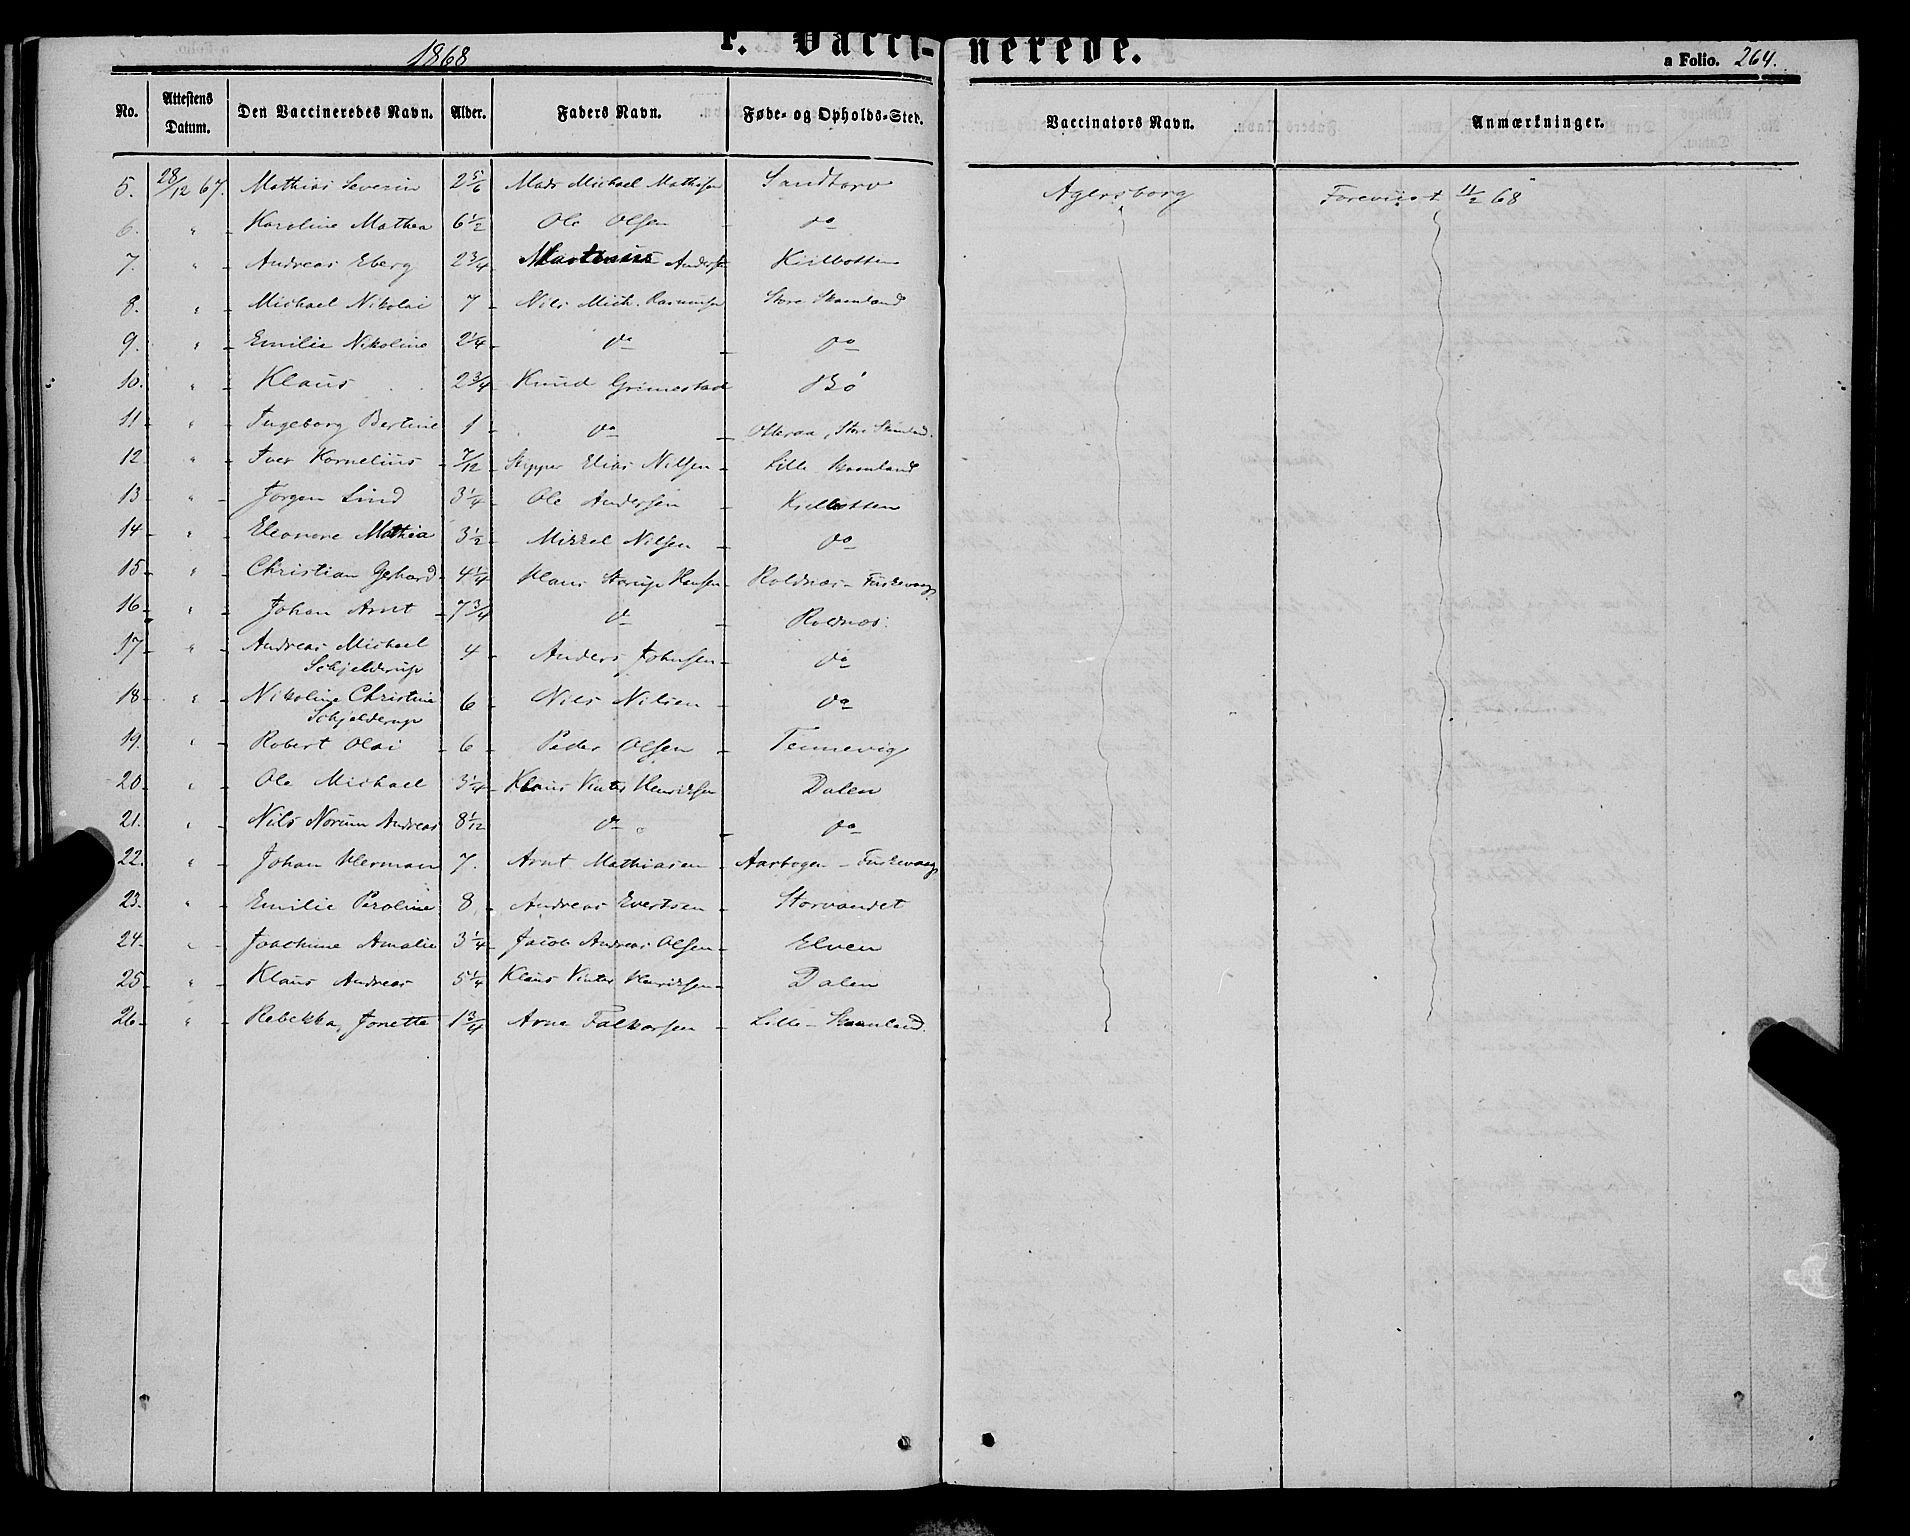 1868
F. Vacci-nerede.
a Folio. 264.
No. Attestens Datum. Den Vaccineredes Navn. Alder. Faders Navn. Føde- og Opholds-Sted. Vaccinators Navn. Anmærkninger.
5. 28/12 67. Mathias Severin 2 5/6 Mads Michael Mathisen Sandtorv Agersborg Foreviist 11/2 68
6. " Karoline Mathea 6 1/2 Ole Olsen do
7. " Andreas Eberg 2 3/4 Martinus Andersen Kiilbotten
8. " Michael Nikolai 7 Nils Mich. Rasmussen Store Skaanland
9. " Emilie Nikoline 2 1/4 do do
10. " Klaus 2 3/4 Knud Grimestad Bø
11 " Ingeborg Bertine 1 do Store Skaanland.
12 " Iver Kornelius 7/12 Skipper Elias Nilsen Lille Skaanland
13 " Jørgen Lind 3 1/4 Ole Andersen Kiilbotten
14 " Eleonore Mathea 3 1/2 Mikkel Nilsen do
15 " Christian Gerhard 4 1/4 Klaus Hansen Roldnæs - Fuskevaag
16 " Johan Arnt 7 3/4 do Roldnæs.
17 " Andreas Michael 4 Anders Johnsen do
Schjelderup
18 " Nikoline Christine 6 Nils Nilsen do
Schjelderup
19. " Robert Olai 6 Peder Olsen Tennevig
20 " Ole Michael 3 1/4 Klaus Vinter Henriksen Dalen
21. " Nils Norum Andreas 8 1/12 do do
22. " Johan Herman 7. Arnt Mathiasen Aarbogen - Fuskevaag
23. " Emilie Peroline 8 Andreas Evertsen Storvandet
24 " Joachime Amalie 3 1/4 Jacob Andreas Olsen Elven
25 " Klaus Andreas 5 1/4 Klaus Vinter Henriksen Dalen
26 " Rebekka Jonette 1 3/4 Arne Falkorsen Lille - Skaanland.